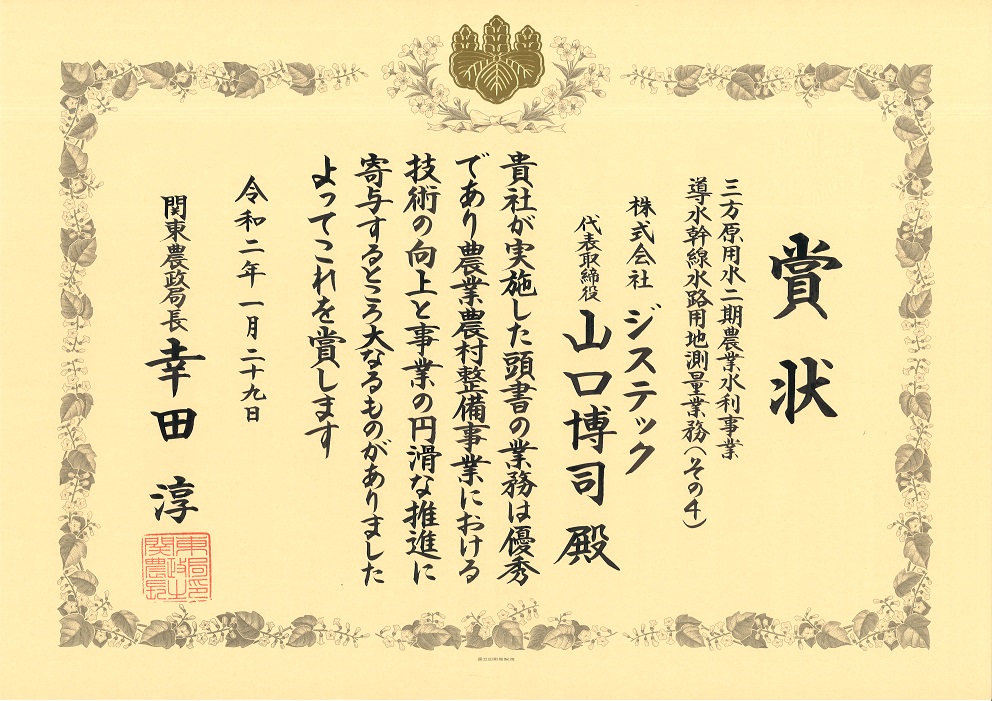 賞状
三方原用水二期農業水利事業
導水幹線水路用地測量業務(その4)
株式会社 ジステック
代表取締役 山口博司 殿
貴社が実施した頭書の業務は優秀
であり農業農村整備事業における
技術の向上と事業の円滑な推進に
寄与するところ大なるものがありました
よってこれを賞します
令和二年一月二十九日
関東農政局長 幸田 淳